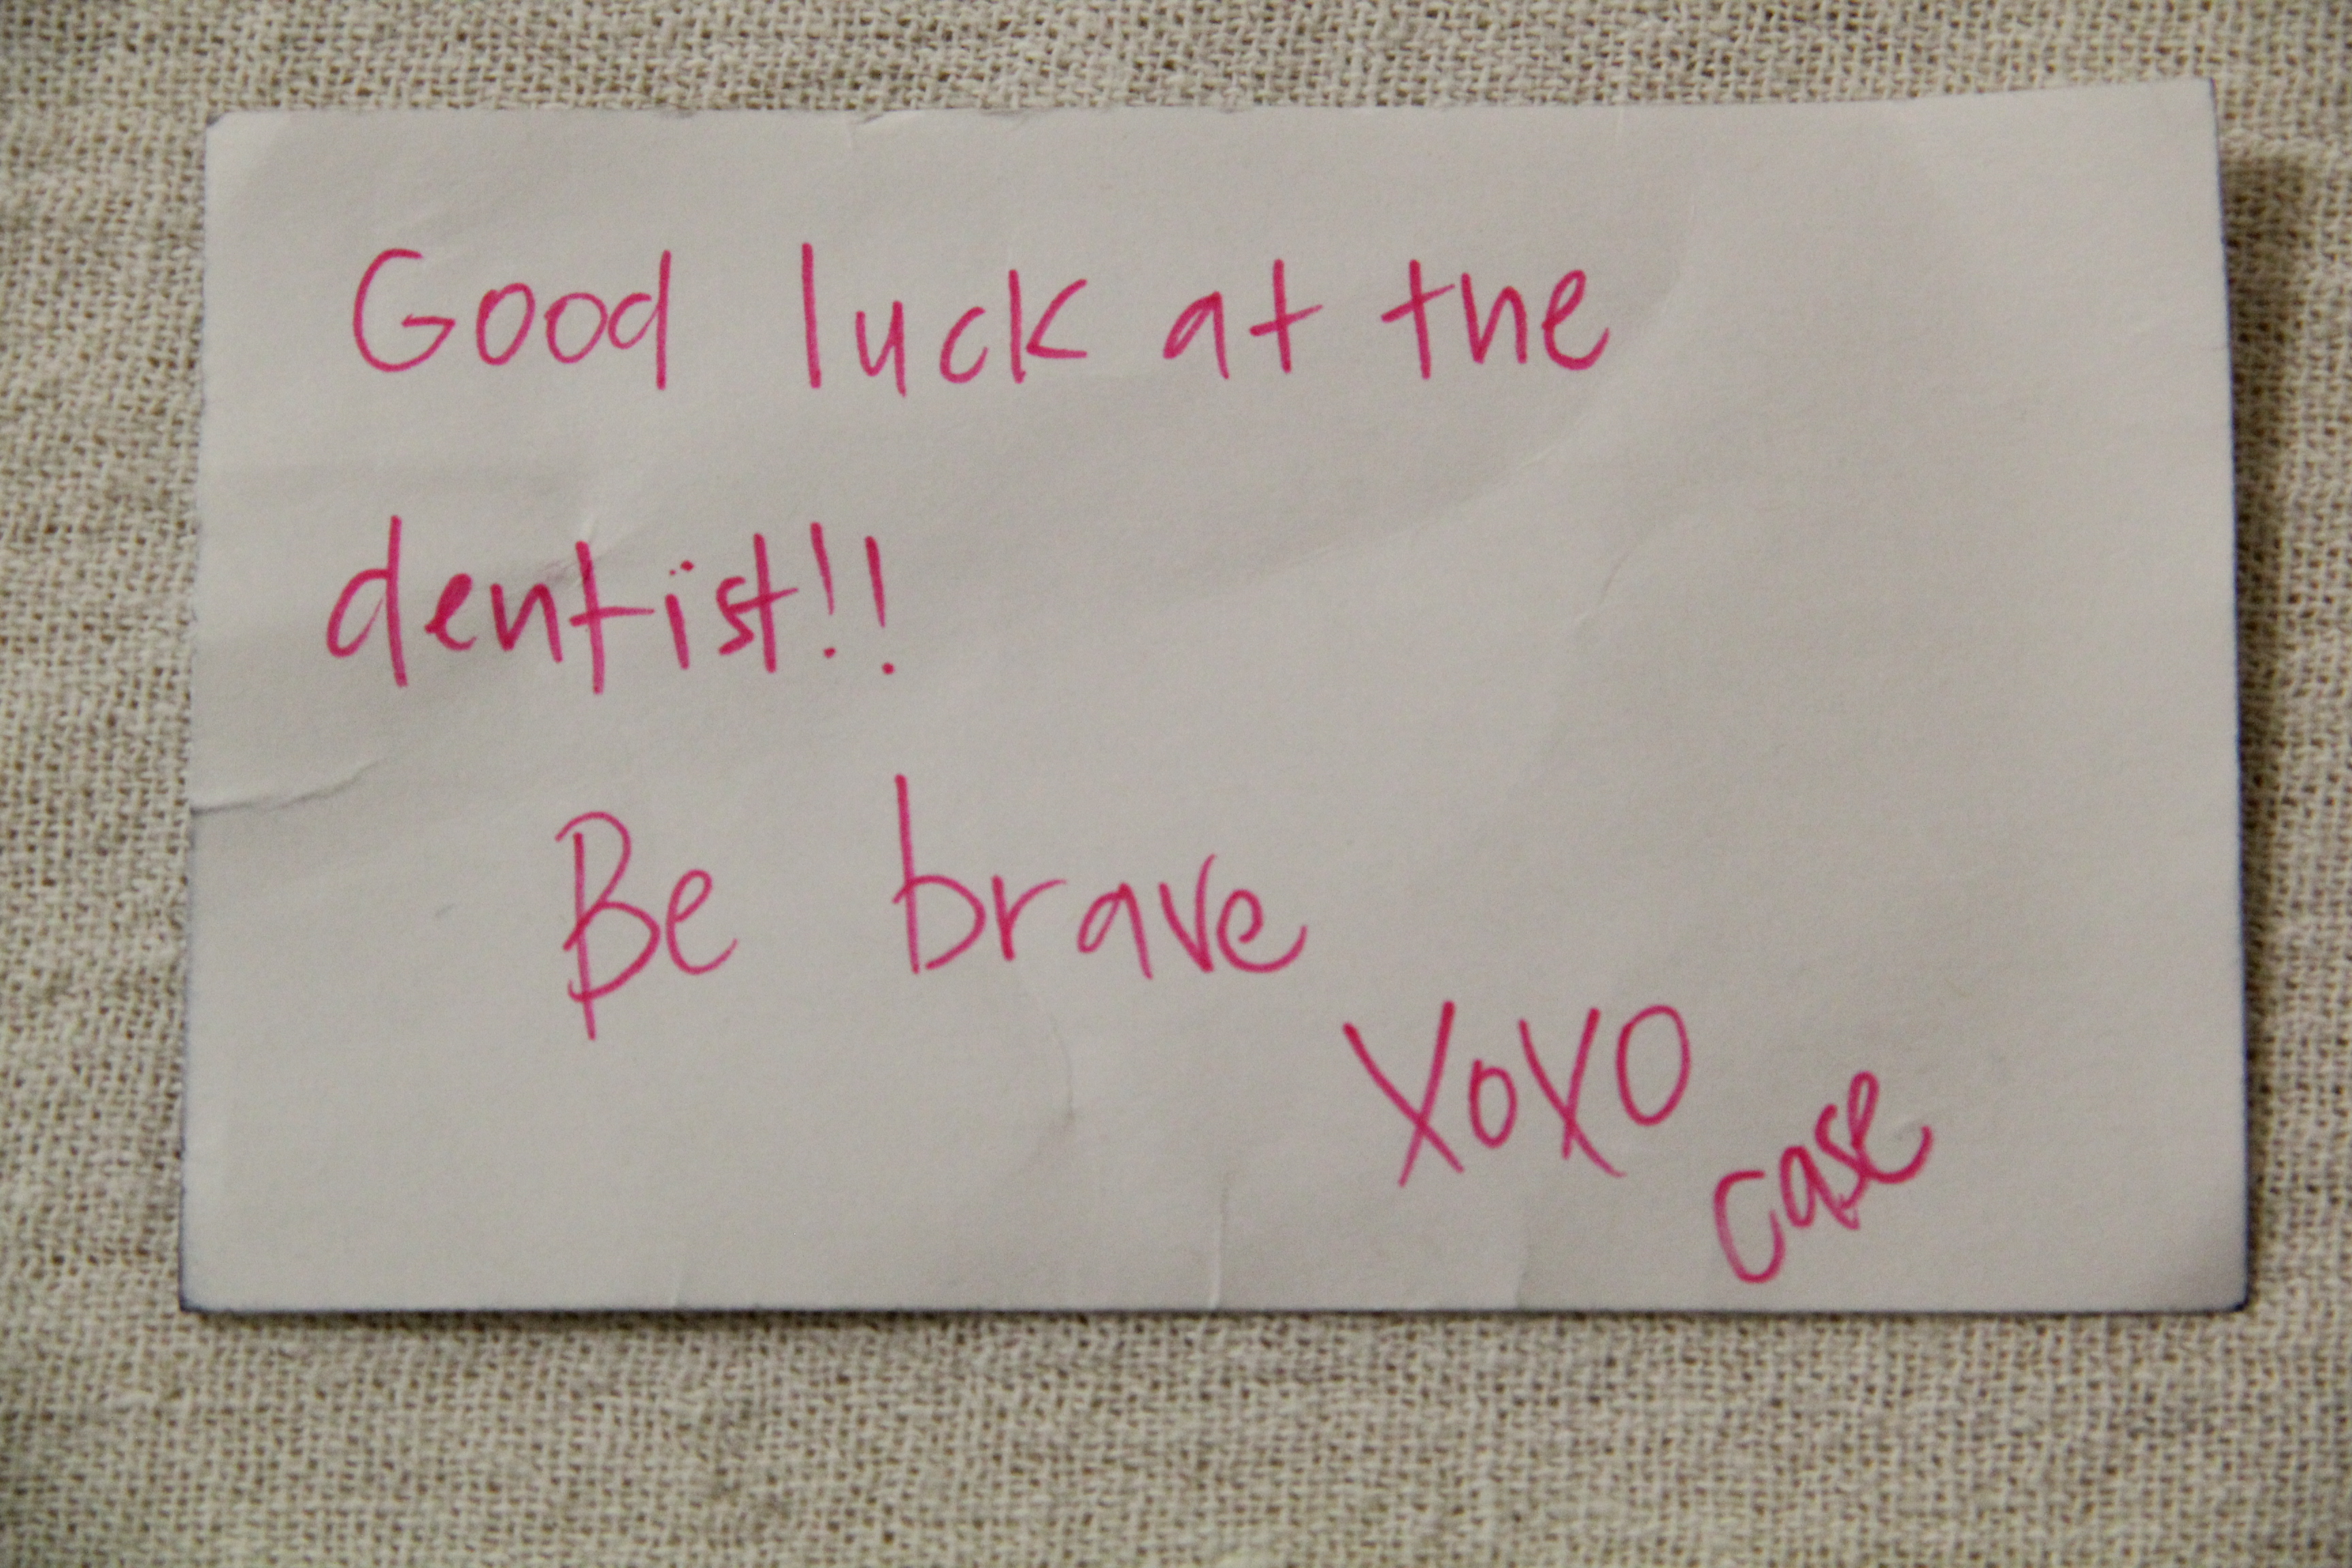 Good luck at the
dentist!!
Be brave
XoXO
case